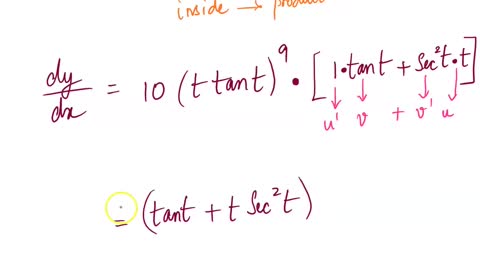 inside → produc
dy/dx = 10 (t tan t)^9 · [1·tan t + Sec²t·t]
u' v + v' u
= (tan t + t Sec²t)